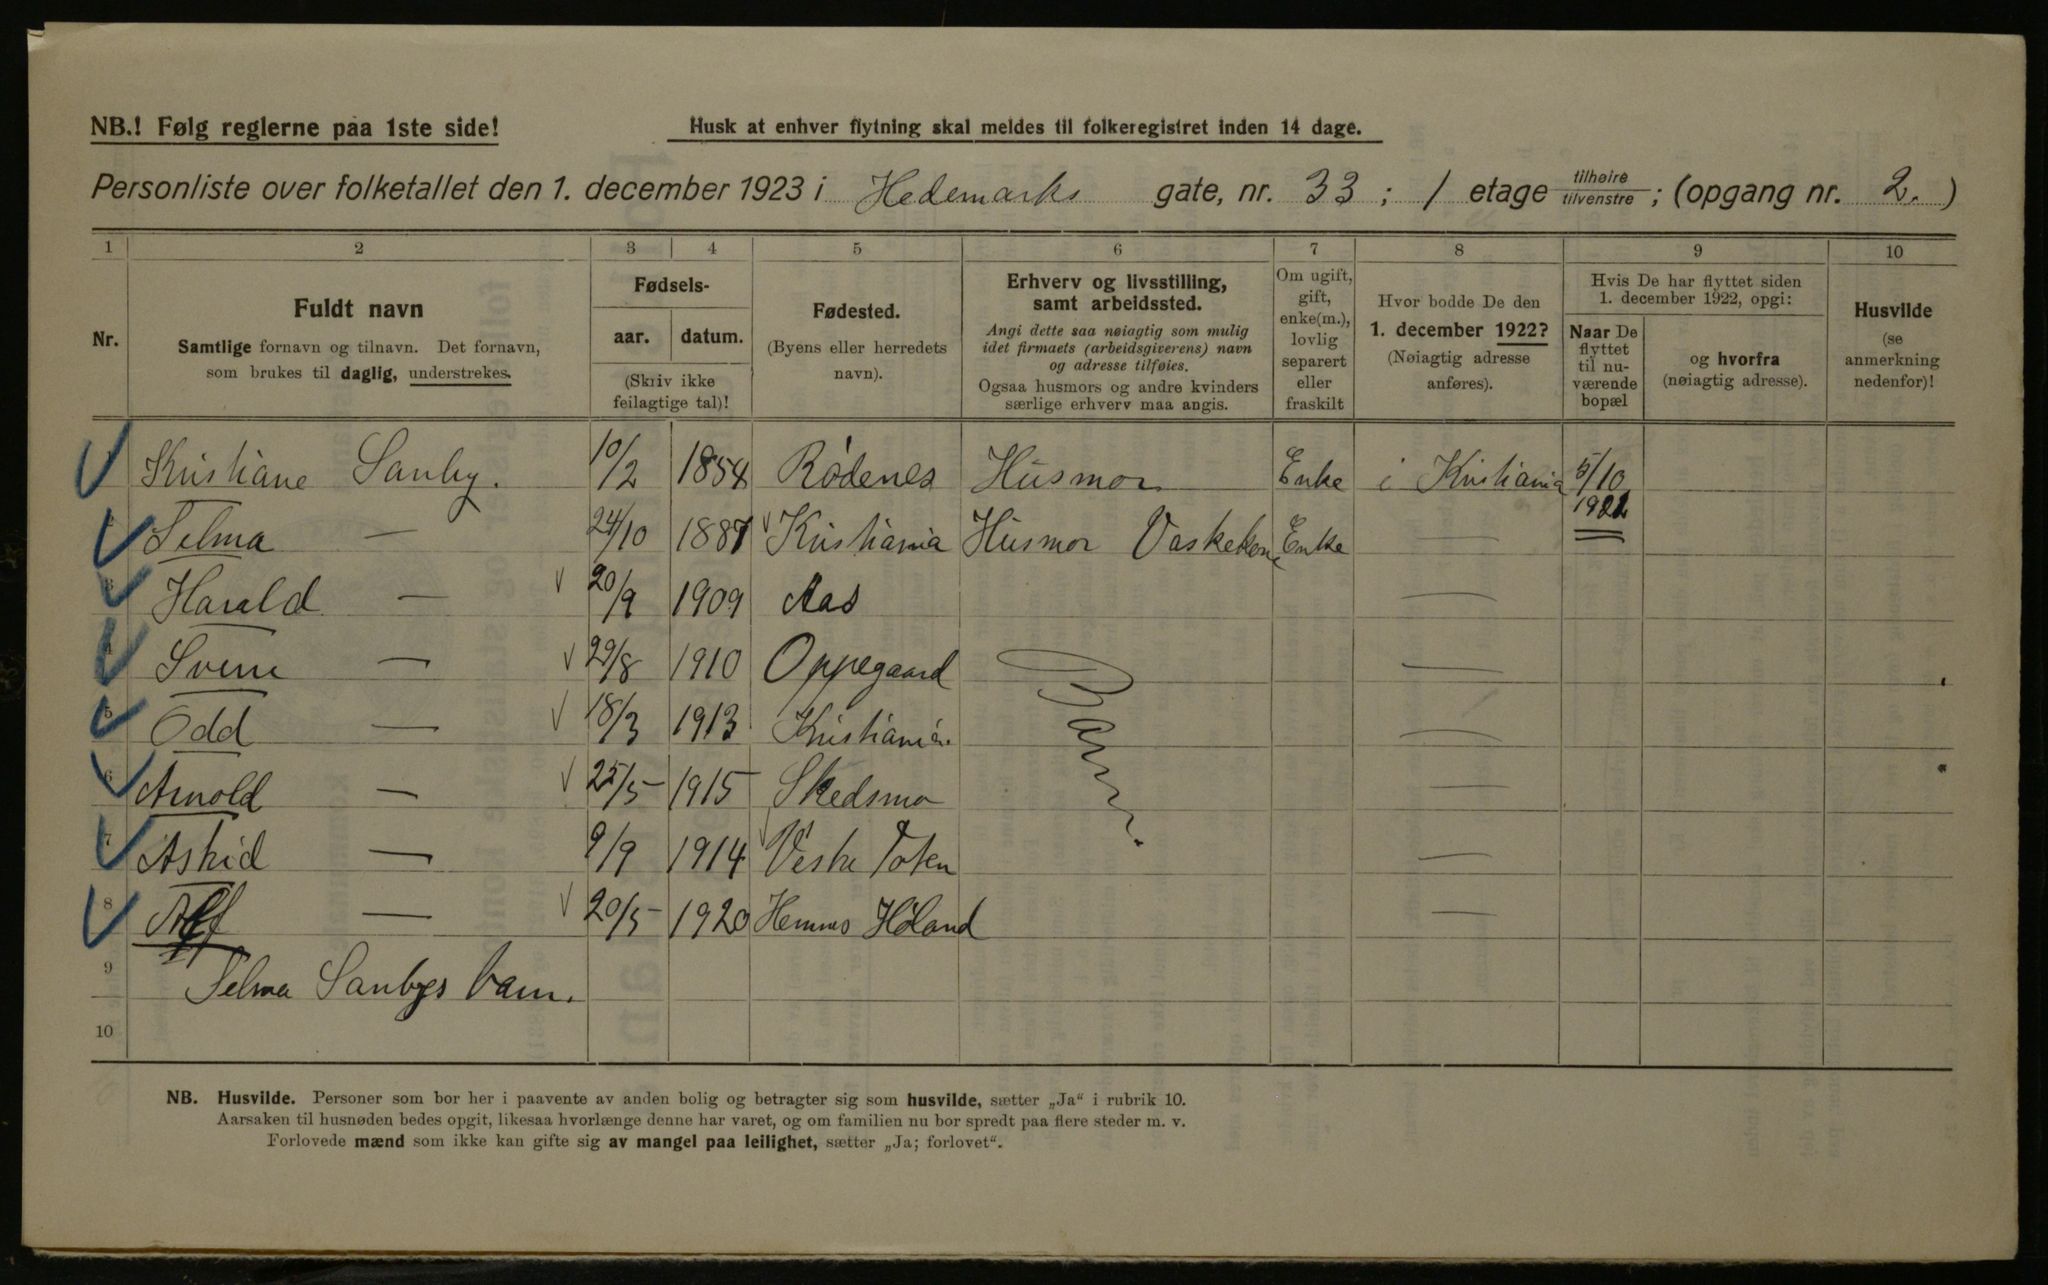 NB.! Følg reglerne paa 1ste side!
Husk at enhver flytning skal meldes til folkeregistret inden 14 dage.
Personliste over folketallet den 1. december 1923 i Hedemarks gate, nr. 33 ; 1 etage tilhøire/tilvenstre ; (opgang nr. 2. )
1 2 3 4 5 6 7 8 9 10
Nr.
Fuldt navn
Samtlige fornavn og tilnavn. Det fornavn,
som brukes til daglig, understrekes.
Fødsels-
aar. datum.
(Skriv ikke
feilagtige tal)!
Fødested.
(Byens eller herredets
navn).
Erhverv og livsstilling,
samt arbeidssted.
Angi dette saa nøiagtig som mulig
idet firmaets (arbeidsgiverens) navn
og adresse tilføies.
Ogsaa husmors og andre kvinders
særlige erhverv maa angis.
Om ugift,
gift,
enke(m.),
lovlig
separert
eller
fraskilt
Hvor bodde De den
1. december 1922?
(Nøiagtig adresse
anføres).
Hvis De har flyttet siden
1. december 1922, opgi:
Naar De
flyttet
til nu-
værende
bopæl
og hvorfra
(nøiagtig adresse).
Husvilde
(se
anmerkning
nedenfor)!
Kristiane Sanby. 10/2 1854 Rødenes Husmor Enke i Kristiania 5/10
1921
Selma — 24/10 1887 Kristiania Husmor Vaskekone Enke —
3 Harald — 20/9 1909 Aas —
4 Sverre — 29/8 1910 Oppegaard —
5 Odd — 18/3 1913 Kristiania. —
Barn.
6 Arnold — 25/5 1915 Skedsmo —
7 Astrid — 9/9 1914 Vestre Toten —
8 Alf — 20/5 1920 Hemnes Høland —
9 Selma Sanbys barn.
10
NB. Husvilde. Personer som bor her i paavente av anden bolig og betragter sig som husvilde, sætter „Ja“ i rubrik 10.
Aarsaken til husnøden bedes opgit, likesaa hvorlænge denne har varet, og om familien nu bor spredt paa flere steder m. v.
Forlovede mænd som ikke kan gifte sig av mangel paa leilighet, sætter „Ja; forlovet“.